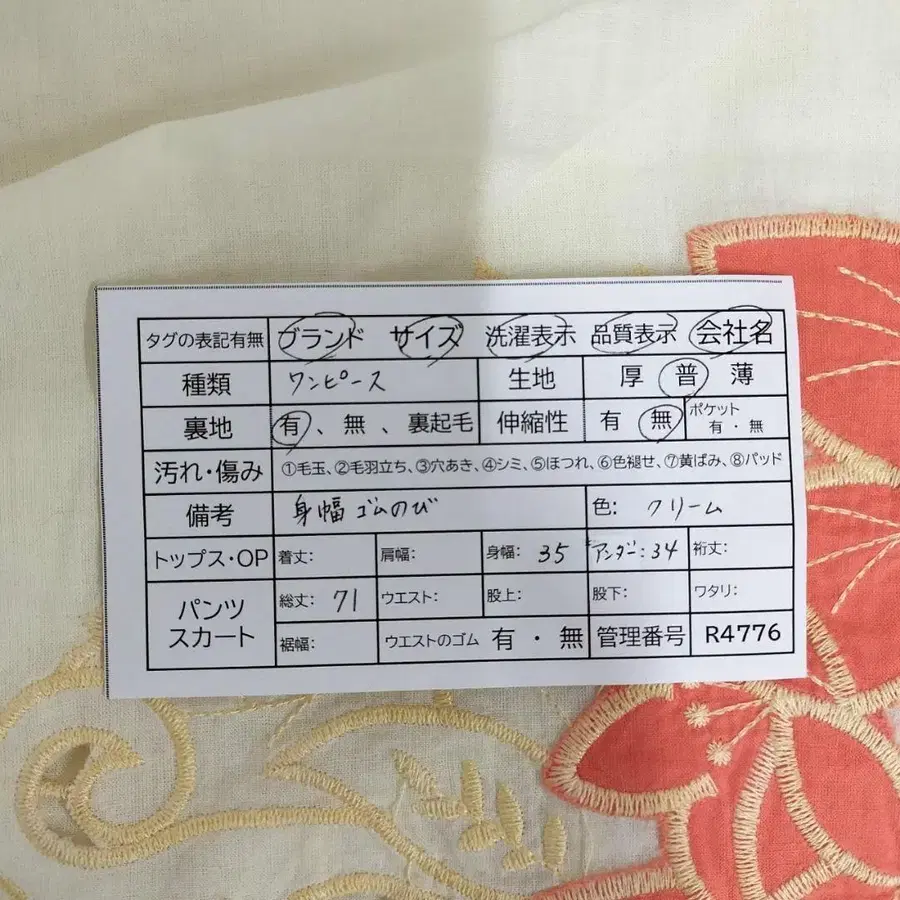 タグの表記有無 ブランド サイズ 洗濯表示 品質表示 会社名
種類 ワンピース 生地 厚 普 薄
裏地 有、無、裏起毛 伸縮性 有 無 ポケット 有・無
汚れ・傷み ①毛玉、②毛羽立ち、③穴あき、④シミ、⑤ほつれ、⑥色褪せ、⑦黄ばみ、⑧パッド
備考 身幅 ゴムのび 色: クリーム
トップス・OP 着丈: 肩幅: 身幅: 35 アンダー: 34 裄丈:
パンツ スカート 総丈: 71 ウエスト: 股上: 股下: ワタリ:
裾幅: ウエストのゴム 有・無 管理番号 R4776